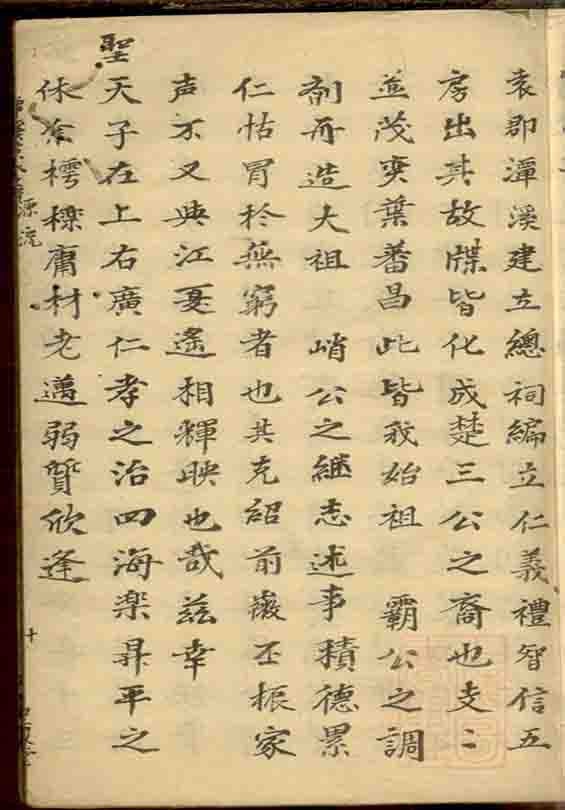 袁郡潭溪建立總祠編立仁義禮智信五
房出其故牒皆化成楚三公之裔也支〻
並茂奕葉蕃昌此皆我始祖 霸公之調
劑再造大祖 峭公之繼志述事積德累
仁怙冒於無窮者也其克紹前徽丕振家
声不又與江夏遙相輝映也哉茲幸
聖天子在上右廣仁孝之治四海楽昇平之
休余樗櫟庸材老邁弱質欣逢
源流
十